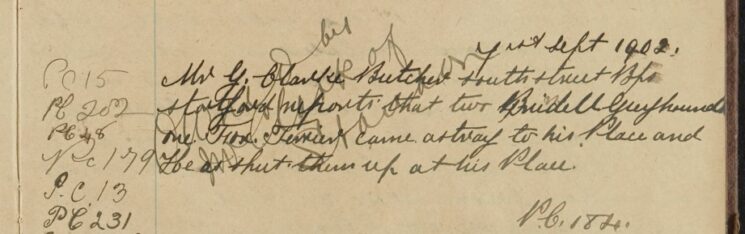 Sept 1902.
PC 15
Mr G. Clarke Butcher South street Bps
PC 202
stortford reports that two Brindell Greyhounds
PC 28
one Fox Terrier came astray to his Place and
PC 179
He as shut them up at his Place.
P.C. 13
PC 231
P.C. 184.